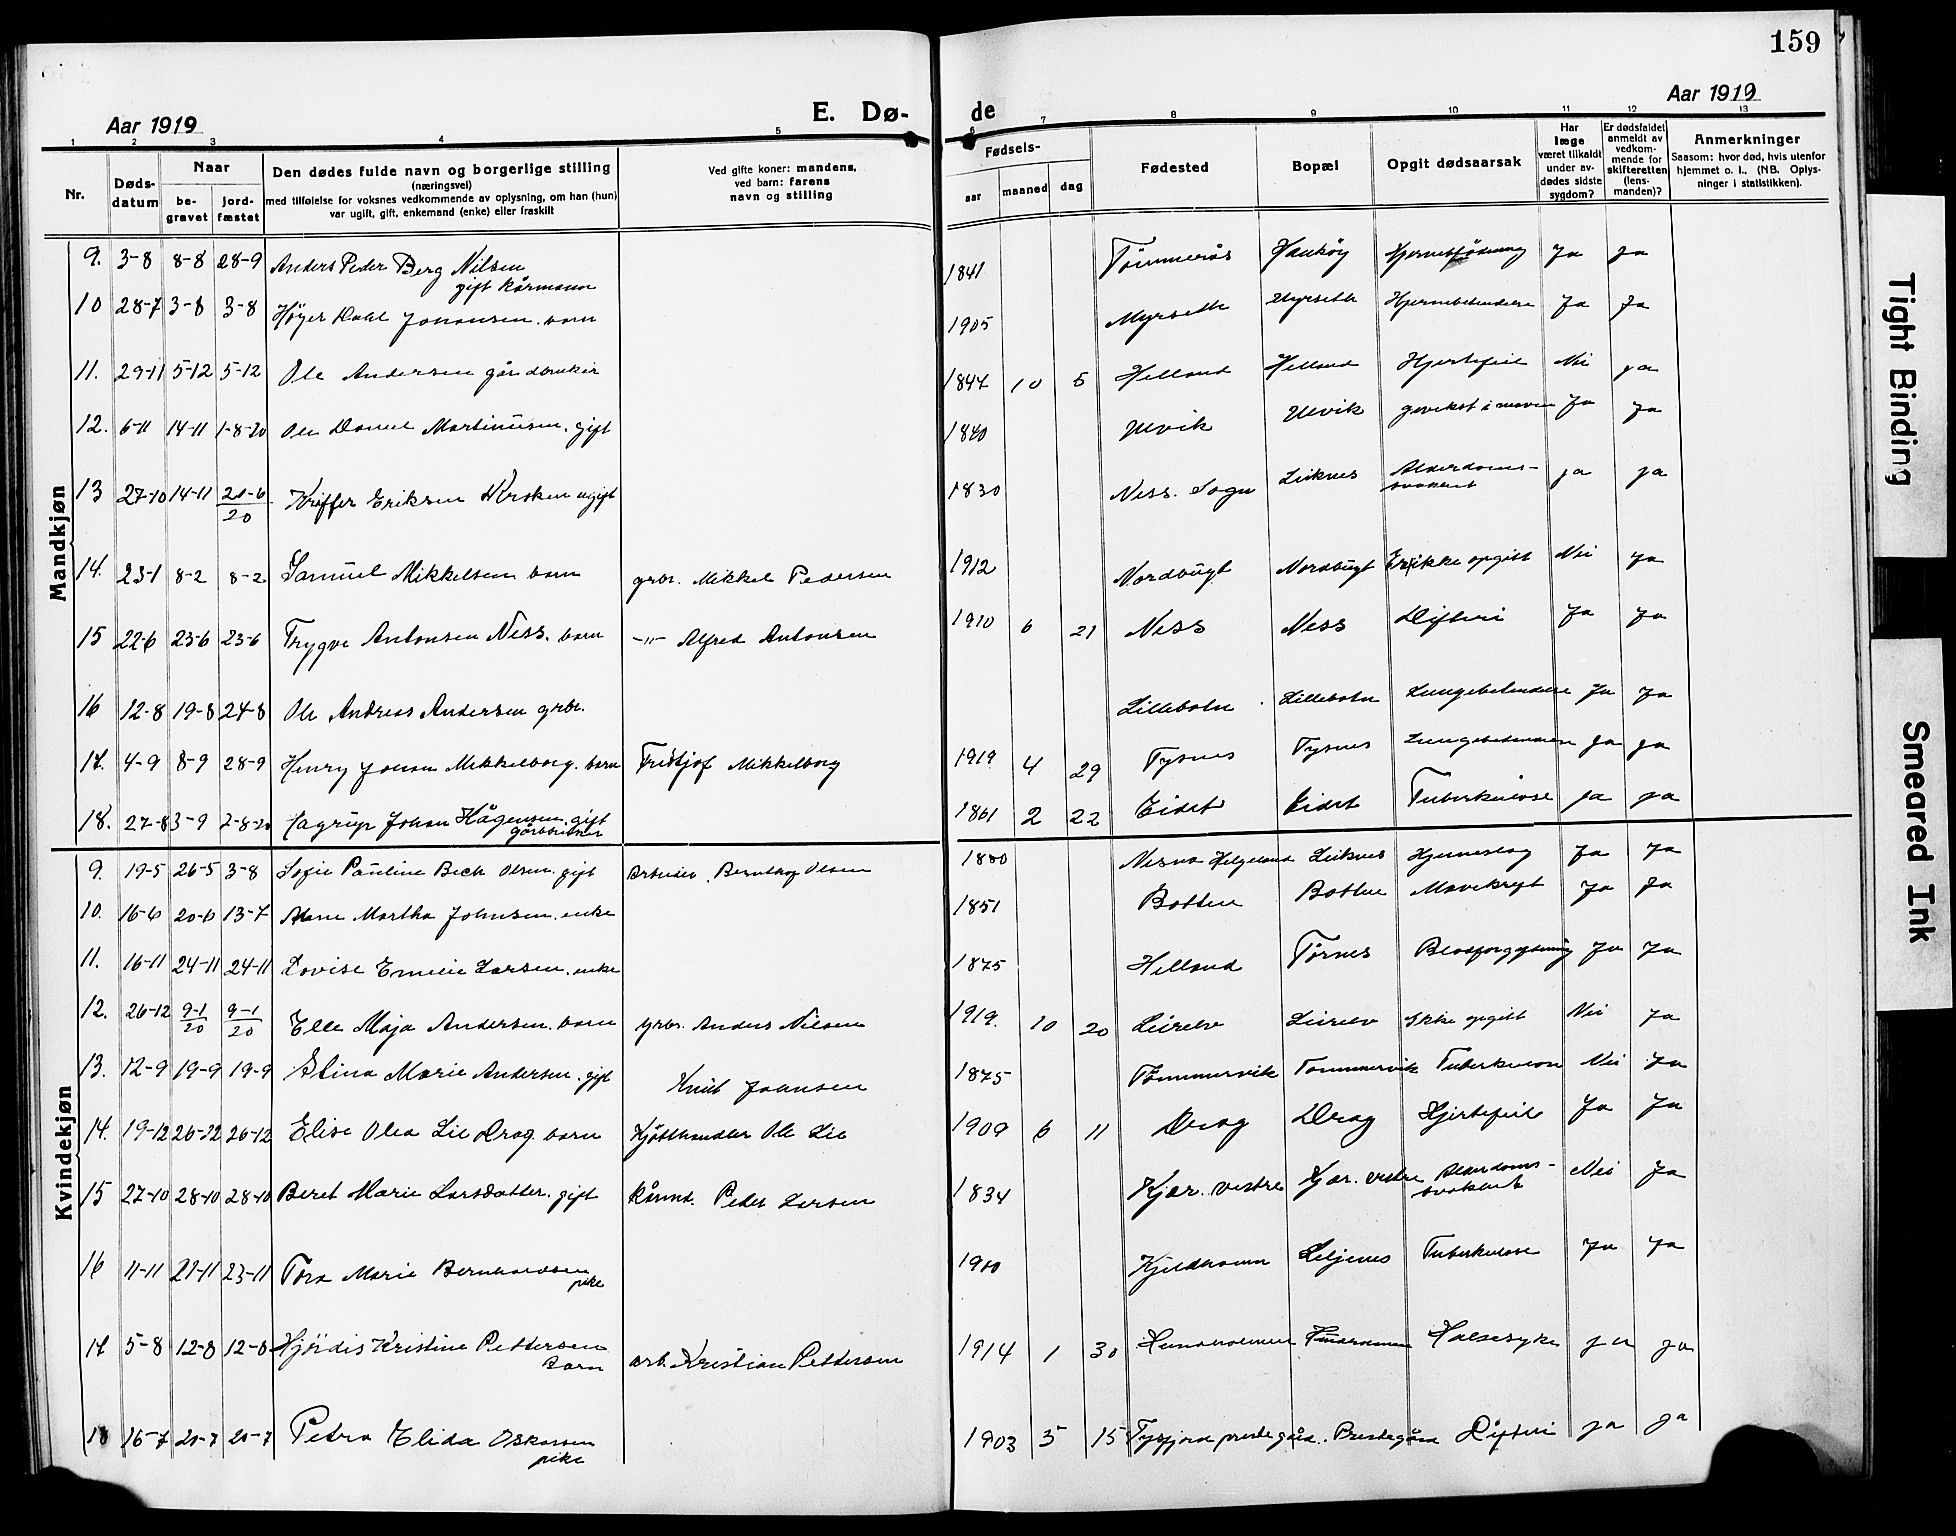 159
Aar 1919
E. Dø-
de
Aar 1919
1 2 3 4 5 6 7 8 9 10 11 12 13
Nr.
Døds-
datum
Naar
be-
gravet
jord-
fæstet
Den dødes fulde navn og borgerlige stilling
(næringsvei)
med tilføielse for voksnes vedkommende av oplysning, om han (hun)
var ugift, gift, enkemand (enke) eller fraskilt
Ved gifte koner: mandens,
ved barn: farens
navn og stilling
Fødsels-
aar
maaned
dag
Fødested
Bopæl
Opgit dødsaarsak
Har
læge
været tilkaldt
under av-
dødes sidste
sygdom?
Er dødsfaldet
anmeldt av
vedkom-
mende for
skifteretten
(lens-
manden)?
Anmerkninger
Saasom: hvor død, hvis utenfor
hjemmet o. l.. (NB. Oplys-
ninger i statistikken).
Mandkjøn
9. 3-8 8-8 28-9 Anders Peder Berg Nilsen 1841 Tømmerås Haukøy Ja Ja
gift kårmann
10 28-7 3-8 3-8 Høyer Dahl Johansen. barn 1905 Myrseth Myrseth Hjernebetendelse Ja Ja
11. 29-11 5-12 5-12 Ole Andersen gårdbruker 1847 10 5 Helland Helland Hjertefeil Nei ja
12. 6-11 14-11 1-8-20 Ole Daniel Martinusen. gift 1840 Ulvik Ulvik gevekst i maven Ja Ja
13 27-10 14-11 21-6/20 Kriffer Eriksen Kroken ugift 1830 Ness. Sogn Leiknes Alderdoms-svakhet ja ja
14. 23-1 8-2 8-2 Samuel Mikkelsen barn grbr. Mikkel Pedersen 1912 Nordbugt Nordbugt Er ikke opgitt Nei ja
15 22-6 23-6 23-6 Trygve Antonsen Ness. barn -"- Alfred Antonsen 1910 6 21 Ness Ness Difteri Ja Ja
16 12-8 19-8 24-8 Ole Andreas Andersen grbr. Lillebotn Lillebotn Lungebetendelse Ja Ja
17. 4-9 8-9 28-9 Henry Johan Mikkelborg. barn Fridtjof Mikkelborg 1919 4 29 Tysnes Tysnes Lungebetendelse Ja ja
18. 27-8 3-9 2-8-20 Hagrup Johan Hågensen. gift 1861 2 22 Eidet Eidet Tuberkulose ja ja
gårdbruker
Kvindekjøn
9. 19-5 26-5 3-8 Sofie Pauline Bech Olsen. gift Arbeider. Olsen 1880 Nesna Helgeland Leiknes Hjerneslag Ja Ja
10. 16-6 20-6 13-7 Ane Martha Johnsen. enke 1851 Botten Botten Mavekreft Ja Ja
11. 16-11 24-11 24-11 Lovise Emelie Larsen. enke 1875 Helland Tørnes Blodforgiftning Ja Ja
12. 26-12 9-1/20 9-1/20 Elle Maja Andersen. barn grbr. Anders Nilsen 1919. 10 20 Leirelv Leirelv Ikke opgitt Nei Ja
13. 12-9 19-9 19-9 Stina Marie Andersen. gift Knut Johnsen 1875 Tømmervik Tømmervik Tuberkulose Nei Ja
14. 19-12 26-12 26-12 Elise Olea Lie Drag. barn Kjøtthandler Ole Lie 1909 6 11 Drag Drag Hjertefeil Ja Ja
15 27-10 28-10 28-10 Beret Marie Larsdatter. gift Kårmd. Peder Larsen 1834 Kjær. vestre Kjær. vestre Alderdoms-svakhet Nei Ja
16 11-11 21-11 23-11 Tora Marie Bernhardsen 1900 Kjeldhamn Liljenes Tuberkulose Ja Ja
pike
17 5-8 12-8 12-8 Hjördis Kristine Pettersen arb. Kristian Pettersen 1914 1 30 Halsesyke ja ja
Barn
18 16-7 20-7 20-7 Petra Elida Oskarsen 1903 5 15 Tysfjord prestegård. Prestegård Difteri ja ja
pike
Tight Binding
Smeared Ink